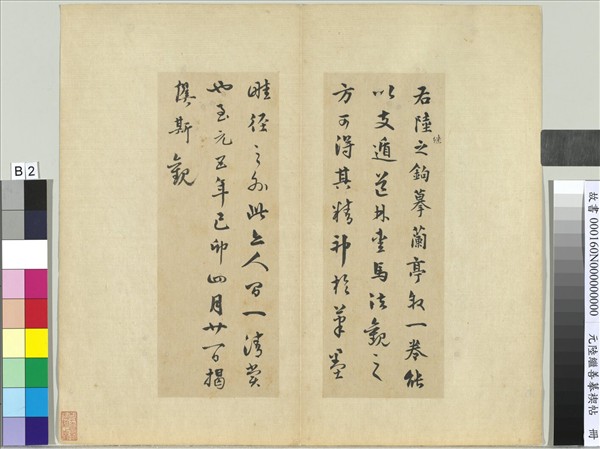 右陸繼之鉤摹蘭亭叙一卷能
以支遁道林馬法觀之
方可得其精神於筆墨
畦徑之外此亦人間一清賞
也至元五年己卯四月廿一日揭
傒斯觀
B 2
故書 000160N000000000 元陸繼善摹禊帖 冊